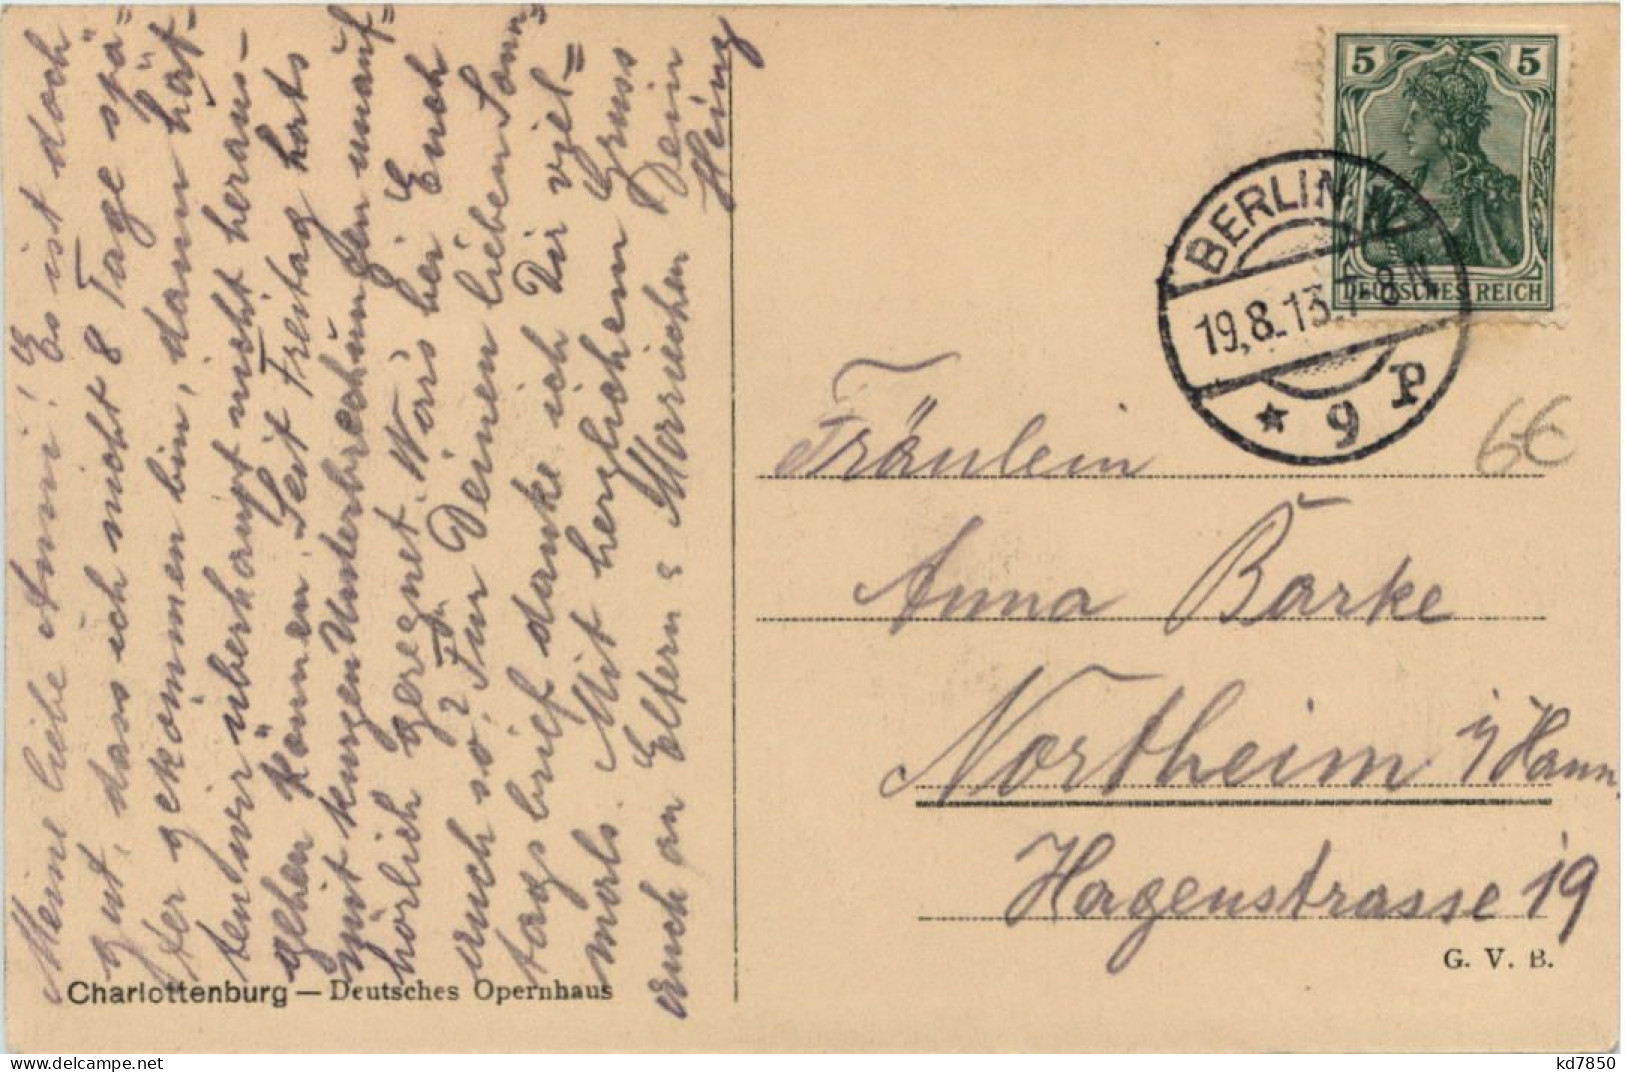 Meine liebe Anni! Es ist doch
gut, dass ich nicht 8 Tage spä=
ter gekommen bin, dann hät=
ten wir überhaupt nicht heraus-
gehen können. Seit Freitag hats
mit kurzen Unterbrechungen unauf=
hörlich geregnet. Wars bei Euch
auch so? Für Deinen lieben Sonn=
tagsbrief danke ich Dir viel=
mals. Mit herzlichem Gruss
auch an Eltern & Mariechen Dein
Heinz
Charlottenburg — Deutsches Opernhaus
5 5
DEUTSCHES REICH
BERLIN W
19.8.13.7-8N
* 9 P
6€
Fräulein
Anna Barke
Northeim i/Hann.
Hagenstrasse 19
G. V. B.
delcampe.net
kd7850